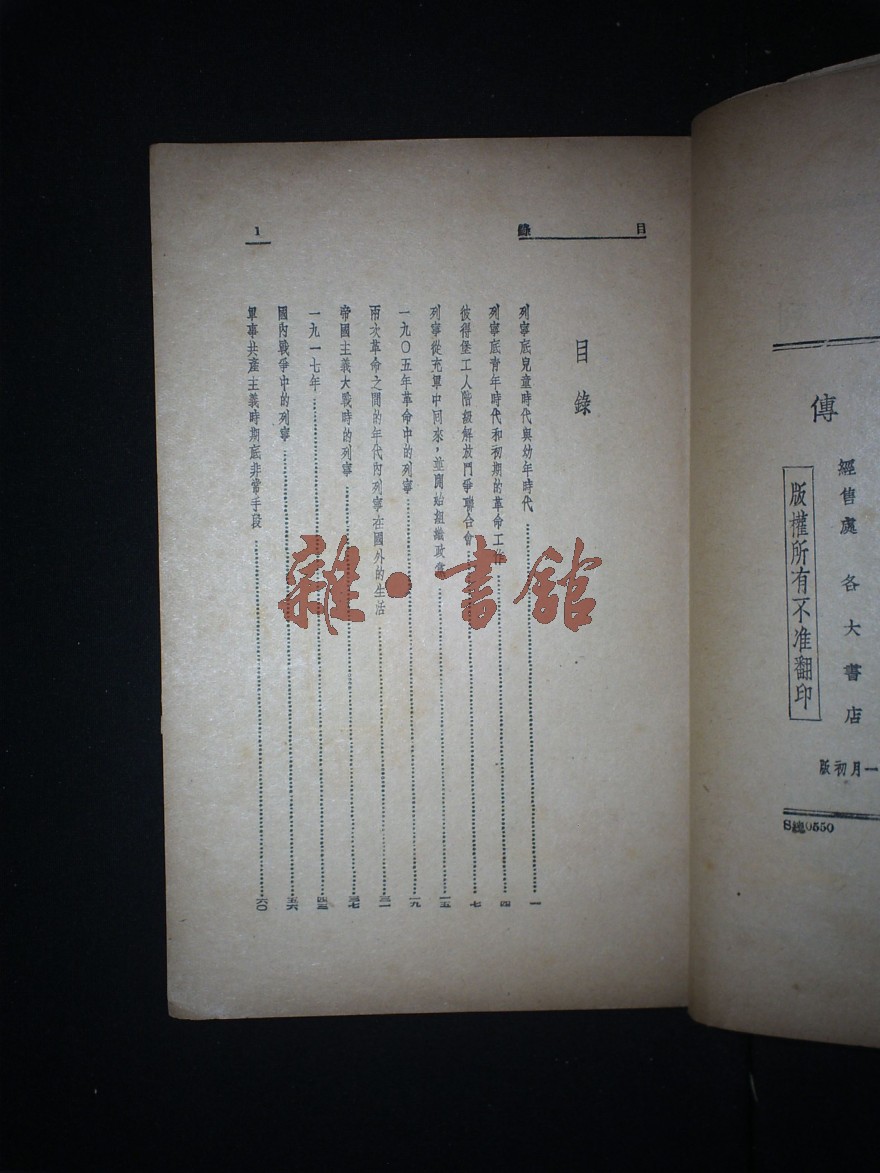 傳
經售處 各大書店
版權所有不准翻印
一月初版
S總0550
目錄
1
目錄
列寧底兒童時代與幼年時代 一
列寧底青年時代和初期的革命工作 四
彼得堡工人階級解放鬥爭聯合會 七
列寧從充軍中回來，並開始組織政黨 一五
一九〇五年革命中的列寧 一九
兩次革命之間的年代內列寧在國外的生活 三一
帝國主義大戰時的列寧 三七
一九一七年 四三
國內戰爭中的列寧 五六
軍事共產主義時期底非常手段 六〇
雜·書館